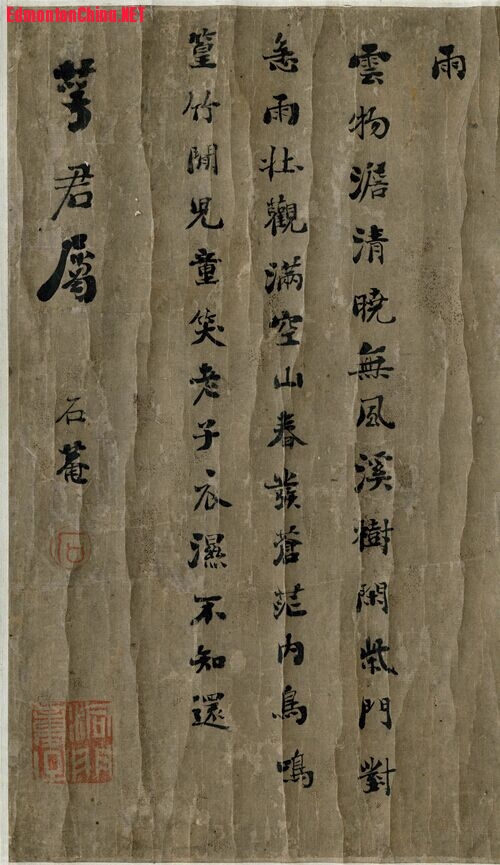 EdmontonChina.NET
雨
雲物澹清曉無風溪樹閑柴門對
急雨壯觀滿空山春發蒼茫內鳥鳴
篁竹間兒童笑老子衣濕不知還
君屬
石菴
石